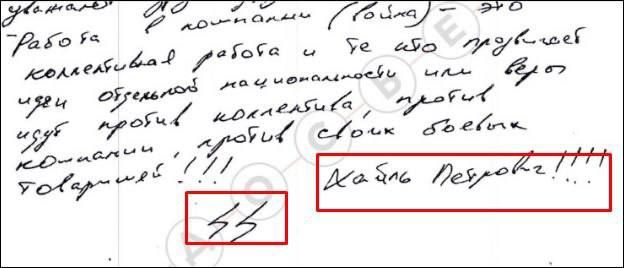 уважает
-Работа в компании (война) - это
коллективная работа и те кто продвигает
идеи отдельной национальности или веры
идут против коллектива, против
компании, против своих боевых
товарищей!!!
Хайль Петрович!!!!
ϟϟ
ДОСЬЕ